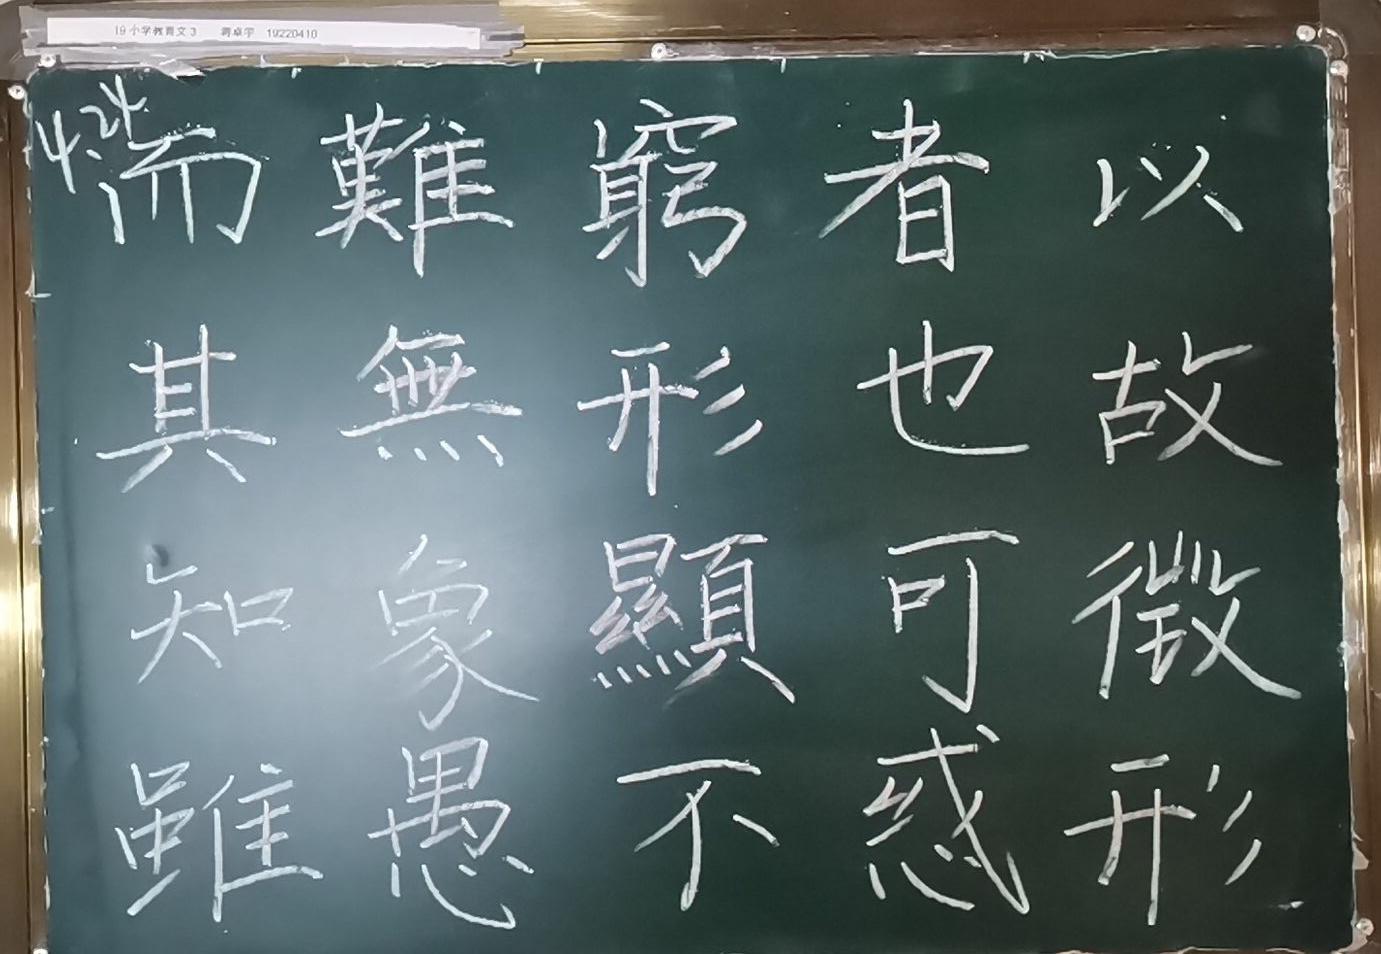 19小学教育文3 蒋卓宇 19220410
4.24
而難窮者以
其無形也故
知象顯可徵
雖愚不惑形